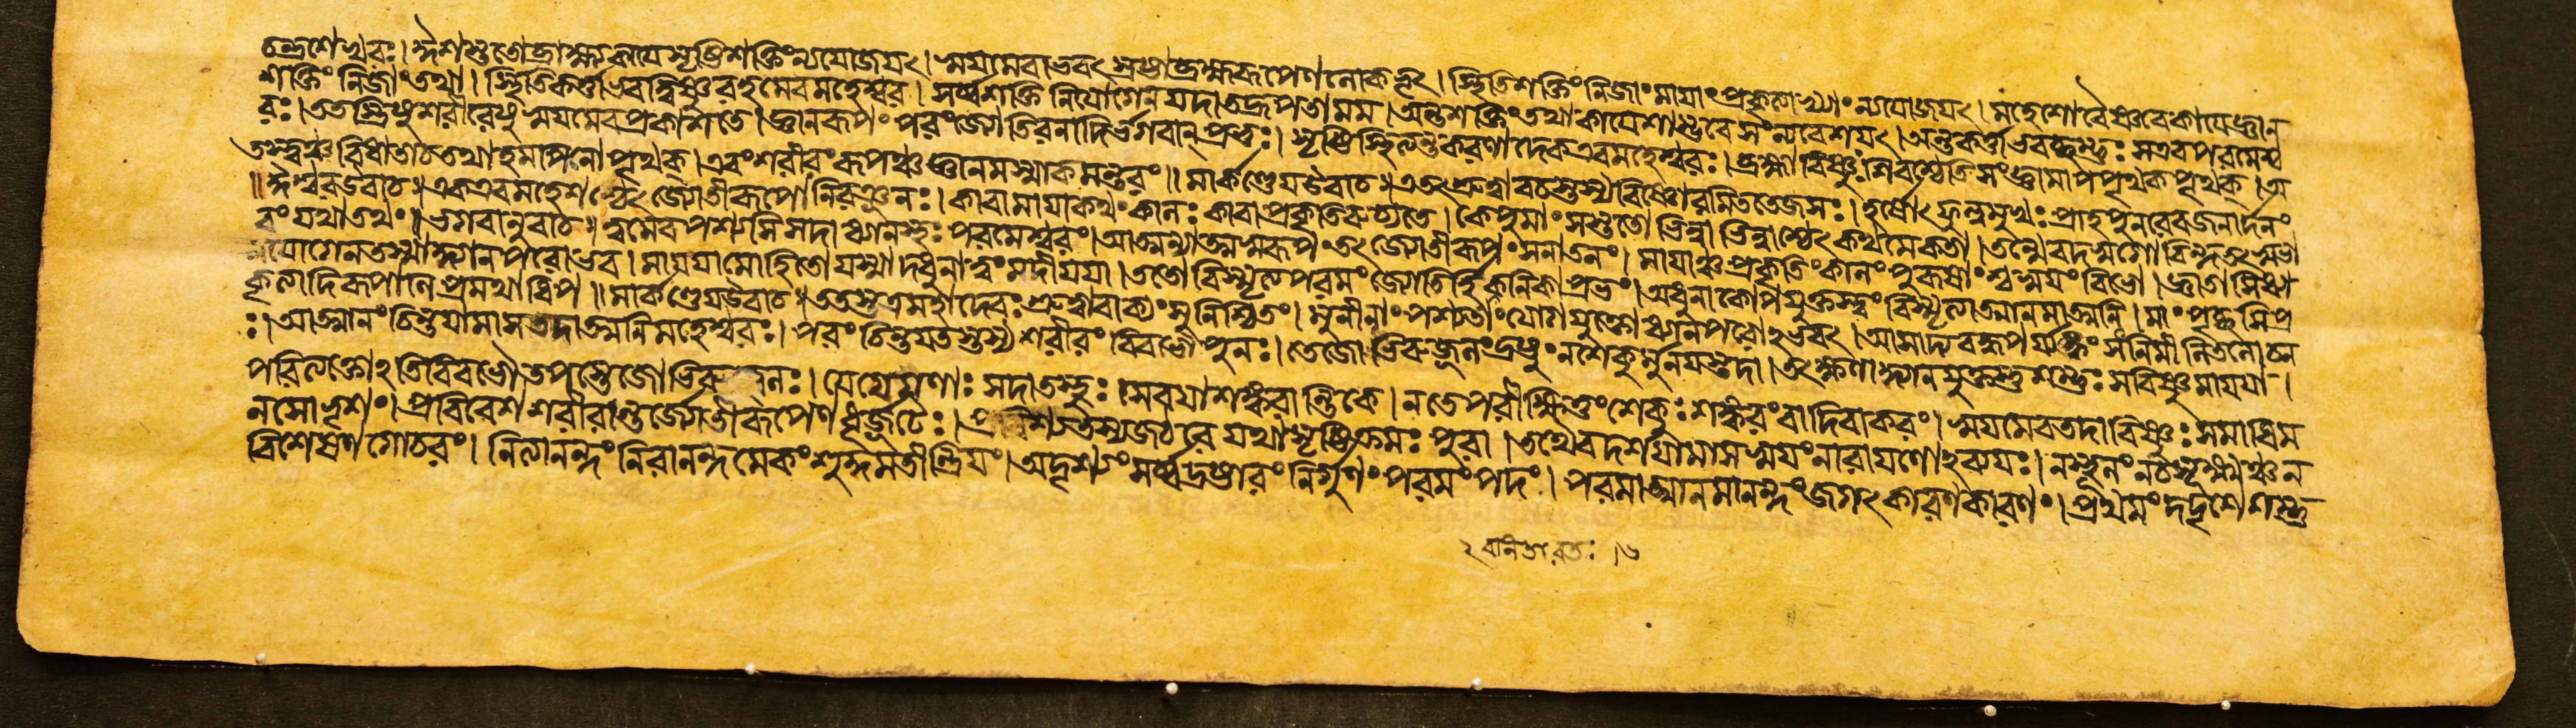 চন্দ্রশেখরঃ। ঈশস্তুতো ব্রাহ্মকায়ে সৃষ্টিশক্তিং ন্যযোজয়ৎ। স্বয়মেবাভবৎ স্রষ্টা ব্রহ্মরূপেণ লোককৃৎ। স্থিতিশক্তিং নিজাং মায়াং প্রকৃত্যাখ্যাং ন্যযোজয়ৎ। মহেশো বৈষ্ণবে কায়ে জ্ঞান
শক্তিং নিজাং তথা। স্থিতিকর্ত্তাভবদ্বিষ্ণুরহমেব মহেশ্বর। সর্ব্বশক্তি নিয়োগেন সদা তদ্রূপতা মম। অন্তশক্তিং তথা কায়ে শাম্ভবে সংন্যবেশয়ৎ। অন্তকর্ত্তাভবচ্ছম্ভুঃ স এব পরমেশ্ব
রঃ। ততস্ত্রিষু শরীরেষু স্বয়মেব প্রকাশতে। জ্ঞানরূপং পরং জ্যোতিরনাদির্ভগবান্ প্রভুঃ। সৃষ্টিস্থিত্যন্তকরণাদেক এব মহেশ্বরঃ। ব্রহ্মা বিষ্ণুঃ শিবশ্চেতি সংজ্ঞামাপ পৃথক্ পৃথক্। অ
তস্ত্বঞ্চ বিধাতা চ তথাহমপি নো পৃথক্। এবং শরীরং রূপঞ্চ জ্ঞানমস্মাকমন্তরং॥ মার্কণ্ডেয় উবাচ॥ এতৎ শ্রুত্বা বচস্তস্য বিষ্ণোরমিততেজসঃ। হর্ষোৎফুল্লমুখঃ প্রাহ পুনরেব জনার্দনং
॥ ঈশ্বর উবাচ॥ এক এব মহেশশ্চেৎ জ্যোতীরূপো নিরঞ্জনঃ। কা বা মায়া কথং কালঃ কা বা প্রকৃতিরুচ্যতে। কে পুমাংসস্ততো ভিন্না ভিন্নাশ্চেৎ কথমেকতা। তন্মে বদস্ব গোবিন্দ তৎপ্রভা
বং যথাতথং॥ ভগবানুবাচ॥ ত্বমেব পশ্যসি সদা ধ্যানস্থঃ পরমেশ্বরং। আত্মন্যাত্মস্বরূপং তৎ জ্যোতীরূপং সনাতনং। মায়াঞ্চ প্রকৃতিং কালং পুরুষাংশ্চ স্বয়ং বিভো। জ্ঞাতাসি ধ্যা
নযোগেন তস্মাদ্ধ্যানপরো ভব। মায়য়া মোহিতো যস্মাদধুনা ত্বং মদীয়য়া। ততো বিস্মৃত্য পরমং জ্যোতির্হি প্রভং। অধুনা কোপযুক্তস্ত্বং বিস্মৃত্যাত্মানমাত্মনি। মাং পৃচ্ছসি প্র
কৃত্যাদিরূপাণি প্রমথাধিপ॥ মার্কণ্ডেয় উবাচ॥ ততস্তত্র মহাদেবঃ শ্রুত্বা বাক্যং সুনিশ্চিতং। মুনীনাং পশ্যতাং যোগযুক্তো ধ্যানপরোঽভবৎ। আসাদ্য বন্ধপর্য্যঙ্কং সংনিমীলিতলোচন
ঃ। আত্মানং চিন্তয়ামাস তদাত্মনি মহেশ্বরঃ। পরং চিন্তয়তস্তস্য শরীরং বিবভৌ পুনঃ। তেজোভিরুজ্জ্বলং দ্রষ্টুং ন শেকুর্মুনয়স্তদা। তৎক্ষণাদ্ধ্যানযুক্তস্তু শম্ভুঃ স বিষ্ণুমায়য়া।
পরিত্যক্তোঽতিবিবভৌ তপস্তেজোভিরুজ্জ্বলঃ। যে যে গণাঃ সদা তস্থুঃ সেবয়া শঙ্করান্তিকে। ন তে পরীক্ষিতুং শেকুঃ শঙ্করং বা দিবাকরং। স্বয়মেব তদা বিষ্ণুঃ সমাধিম
নসো ভৃশং। প্রবিবেশ শরীরান্তর্জ্যোতীরূপেণ ধূর্জ্জটেঃ। প্রবিশ্য তস্য জঠরে যথা সৃষ্টিক্রমঃ পুরা। তথৈব দর্শয়ামাস স্বয়ং নারায়ণোঽব্যয়ঃ। ন স্থূলং ন চ সূক্ষ্মঞ্চ ন
বিশেষণগোচরং। নিত্যানন্দং নিরানন্দমেকং শুদ্ধমতীন্দ্রিয়ং। অদৃশ্যং সর্ব্বদ্রষ্টারং নির্গুণং পরমং পদং। পরমাত্মানমানন্দং জগৎকারণকারণং। প্রথমং দদৃশে শম্ভু